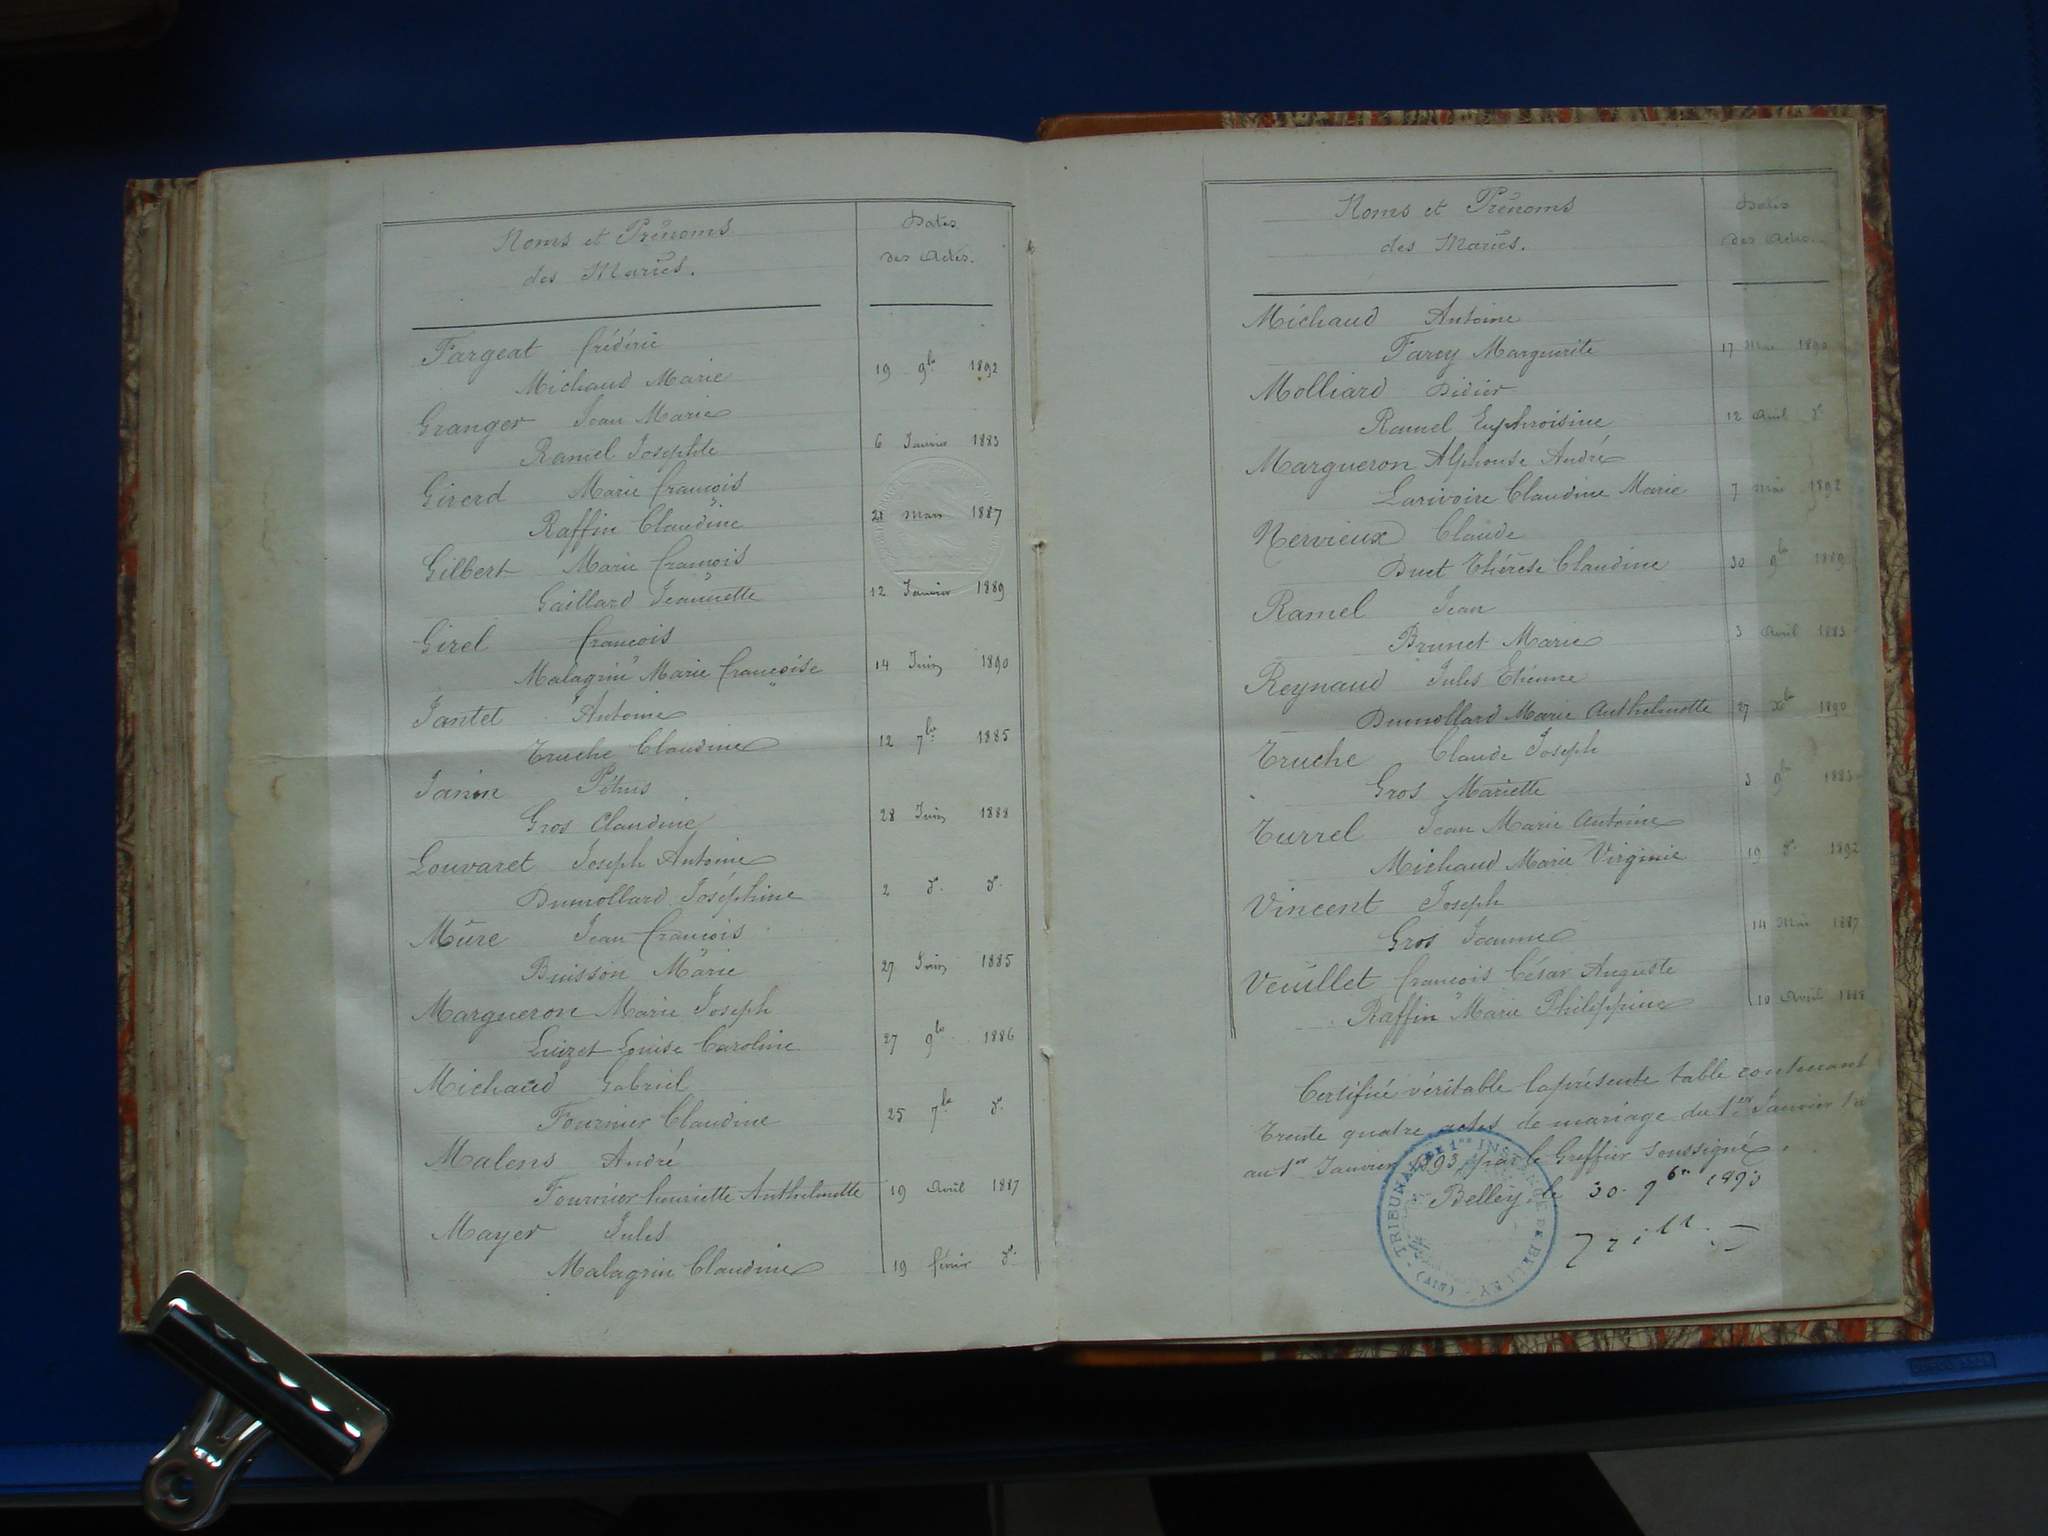 Noms et Prénoms
des Mariés.
Dates
des Actes.
Fargeat frédéric
Michaud Marie 19 9bre 1892
Granger Jean Marie
Ramel Josephte 6 Janvier 1883
Girerd Marie françois
Raffin Claudine 21 Mars 1887
Gilbert Marie françois
Gaillard Jeannette 12 Janvier 1889
Girel françois
Malagrin Marie françoise 14 Juin 1890
Jantet Antoine
Truche Claudine 12 7bre 1885
Janin Pétrus
Gros Claudine 28 Juin 1888
Louvaret Joseph Antoine
Dumollard Joséphine 2 do. do.
Mûre Jean françois
Buisson Marie 27 Juin 1885
Margueron Marie Joseph
Luizet Louise Caroline 27 9bre 1886
Michaud Gabriel
Fournier Claudine 25 7bre do.
Malens André
Fournier henriette Anthelmette 19 Avril 1887
Mayer Jules
Malagrin Claudine 19 février do.
Noms et Prénoms
des Mariés.
Dates
des Actes.
Michaud Antoine
Farcy Marguerite 17 Mai 1890
Molliard Didier
Ramel Euphroisine 12 Avril do
Margueron Alphonse André
Larivoire Claudine Marie 7 Mai 1892
Nervieux Claude
Duet Thérèse Claudine 30 9bre 1889
Ramel Jean
Brunet Marie 3 Avril 1883
Reynaud Jules Etienne
Dumollard Marie Anthelmette 27 Xbre 1890
Truche Claude Joseph
Gros Mariette 3 9bre 1883
Turrel Jean Marie Antoine
Michaud Marie Virginie 19 do 1892
Vincent Joseph
Gros Jeanne 14 Mai 1887
Veuillet françois César Auguste
Raffin Marie Philippine 10 Avril 1888
Certifié véritable la présente table contenant
trente quatre actes de mariage du 1er Janvier
au 1er Janvier 1893, par le Greffier soussigné.
Belley, le 30. 9bre 1893
TRIBUNAL DE 1RE INSTANCE DE BELLEY (AIN)